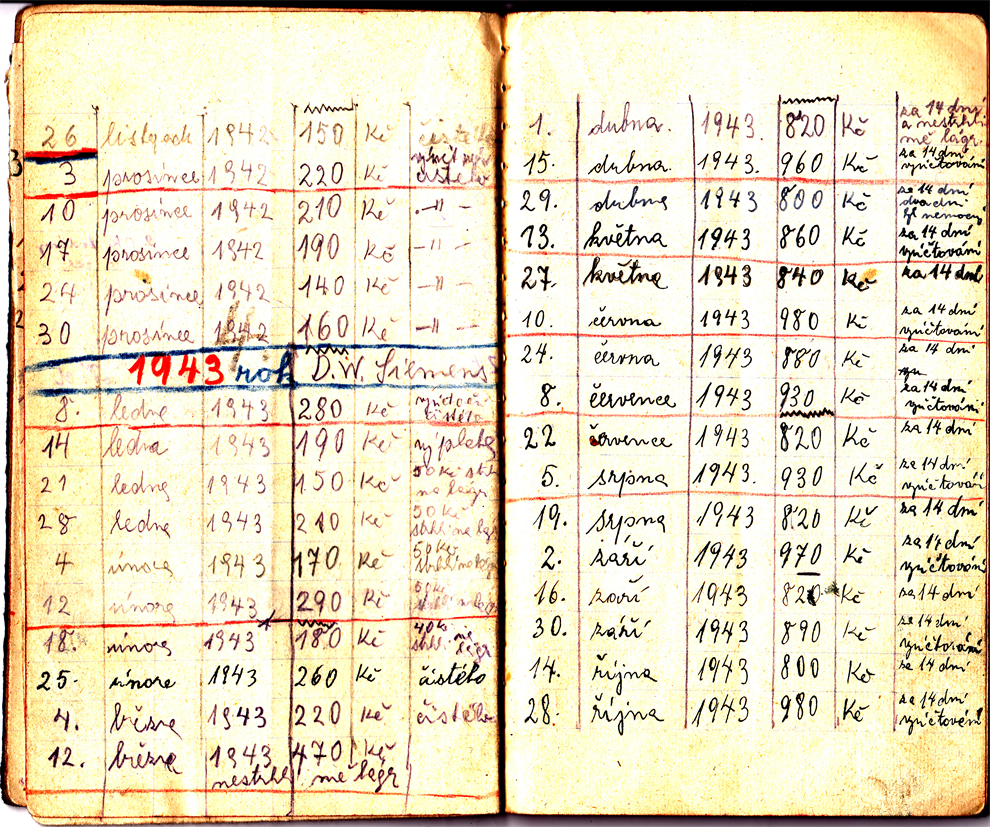 26 listopad 1942 150 Kč čistého
3 prosince 1942 220 Kč čistého
10 prosince 1942 210 Kč -"-
17 prosince 1942 190 Kč -"-
24 prosince 1942 140 Kč -"-
30 prosince 1942 160 Kč -"-
1943 rok D.W. Siemens
8. ledna 1943 280 Kč
14 ledna 1943 190 Kč výplata
21 ledna 1943 150 Kč 50 Kč strhli
na lágr
28 ledna 1943 210 Kč 50 Kč
strhli na lágr
4 února 1943 170 Kč 50 Kč
strhli na lágr
12 února 1943 290 Kč 50 Kč
strhli na lágr
18. února 1943 180 Kč 40 Kč
strhli na lágr
25. února 1943 260 Kč čistého
4. března 1943 220 Kč čistého
12. března 1943 470 Kč
nestrhl mě lágr
1. dubna. 1943. 820 Kč za 14 dní
a nestrhli
mě lágr.
15. dubna. 1943. 960 Kč za 14 dní
vyúčtování
29. dubna 1943 800 Kč za 14 dní
dva dni
nemocný
13. května 1943 860 Kč za 14 dní
vyúčtování
27. května 1943 840 Kč za 14 dní
10. června 1943 980 Kč za 14 dní
vyúčtování
24. června 1943 880 Kč za 14 dní
vyu
8. července 1943 930 Kč za 14 dní
vyúčtování
22 července 1943 820 Kč za 14 dní
5. srpna 1943. 930 Kč za 14 dní
vyúčtování
19. srpna 1943 820 Kč za 14 dní
2. září 1943 970 Kč za 14 dní
vyúčtování
16. září 1943 820 Kč za 14 dní
30. září 1943 890 Kč za 14 dní
vyúčtování
14. října 1943 800 Kč za 14 dní
28. října 1943 980 Kč za 14 dní
vyúčtování